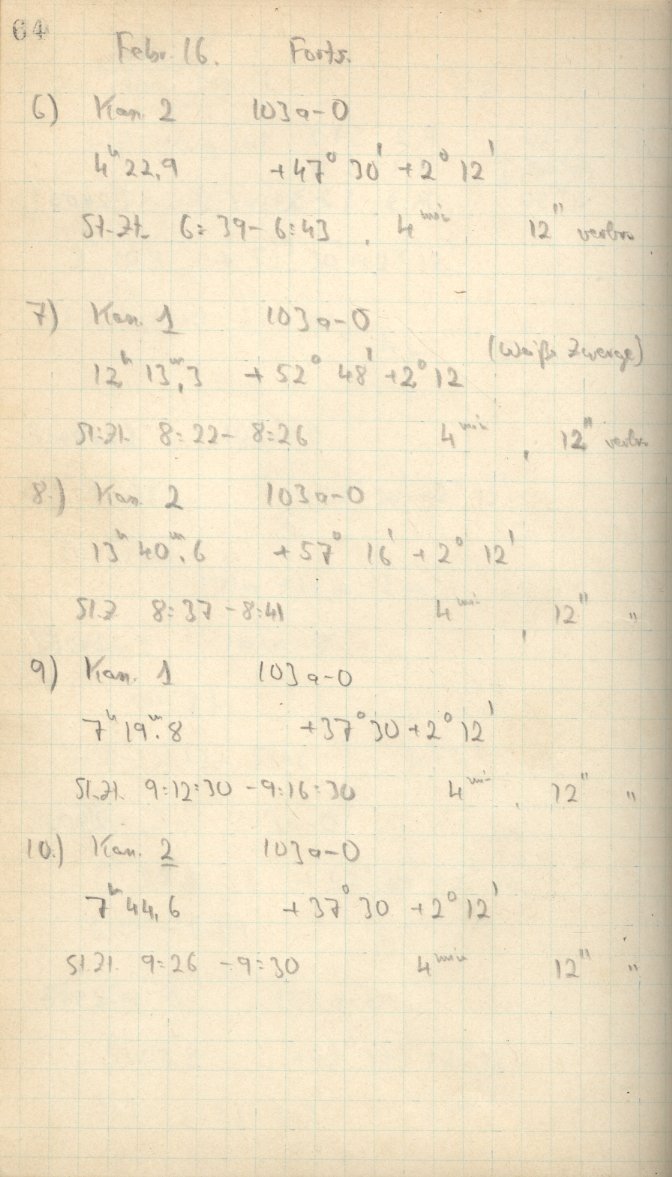 64
Febr. 16. Forts.
6) Kam. 2 103a-O
4ʰ 22,9 +47° 30' +2° 12'
St.Zt. 6:39-6:43, 4 min 12" verbr.
7) Kam. 1 103a-O
(Weiße Zwerge)
12ʰ 13ᵐ,3 +52° 48' +2° 12
St.Zt. 8:22-8:26 4 min, 12" verbr.
8.) Kam. 2 103a-O
13ʰ 40ᵐ.6 +57° 16' +2° 12'
St.Z 8:37-8:41 4 min, 12" "
9) Kam. 1 103a-O
7ʰ 19ᵐ.8 +37° 30 +2° 12'
St.Zt. 9:12:30-9:16:30 4 min, 12" "
10.) Kam. 2 103a-O
7ʰ 44,6 +37° 30 +2° 12'
St.Zt. 9:26-9:30 4 min 12" "